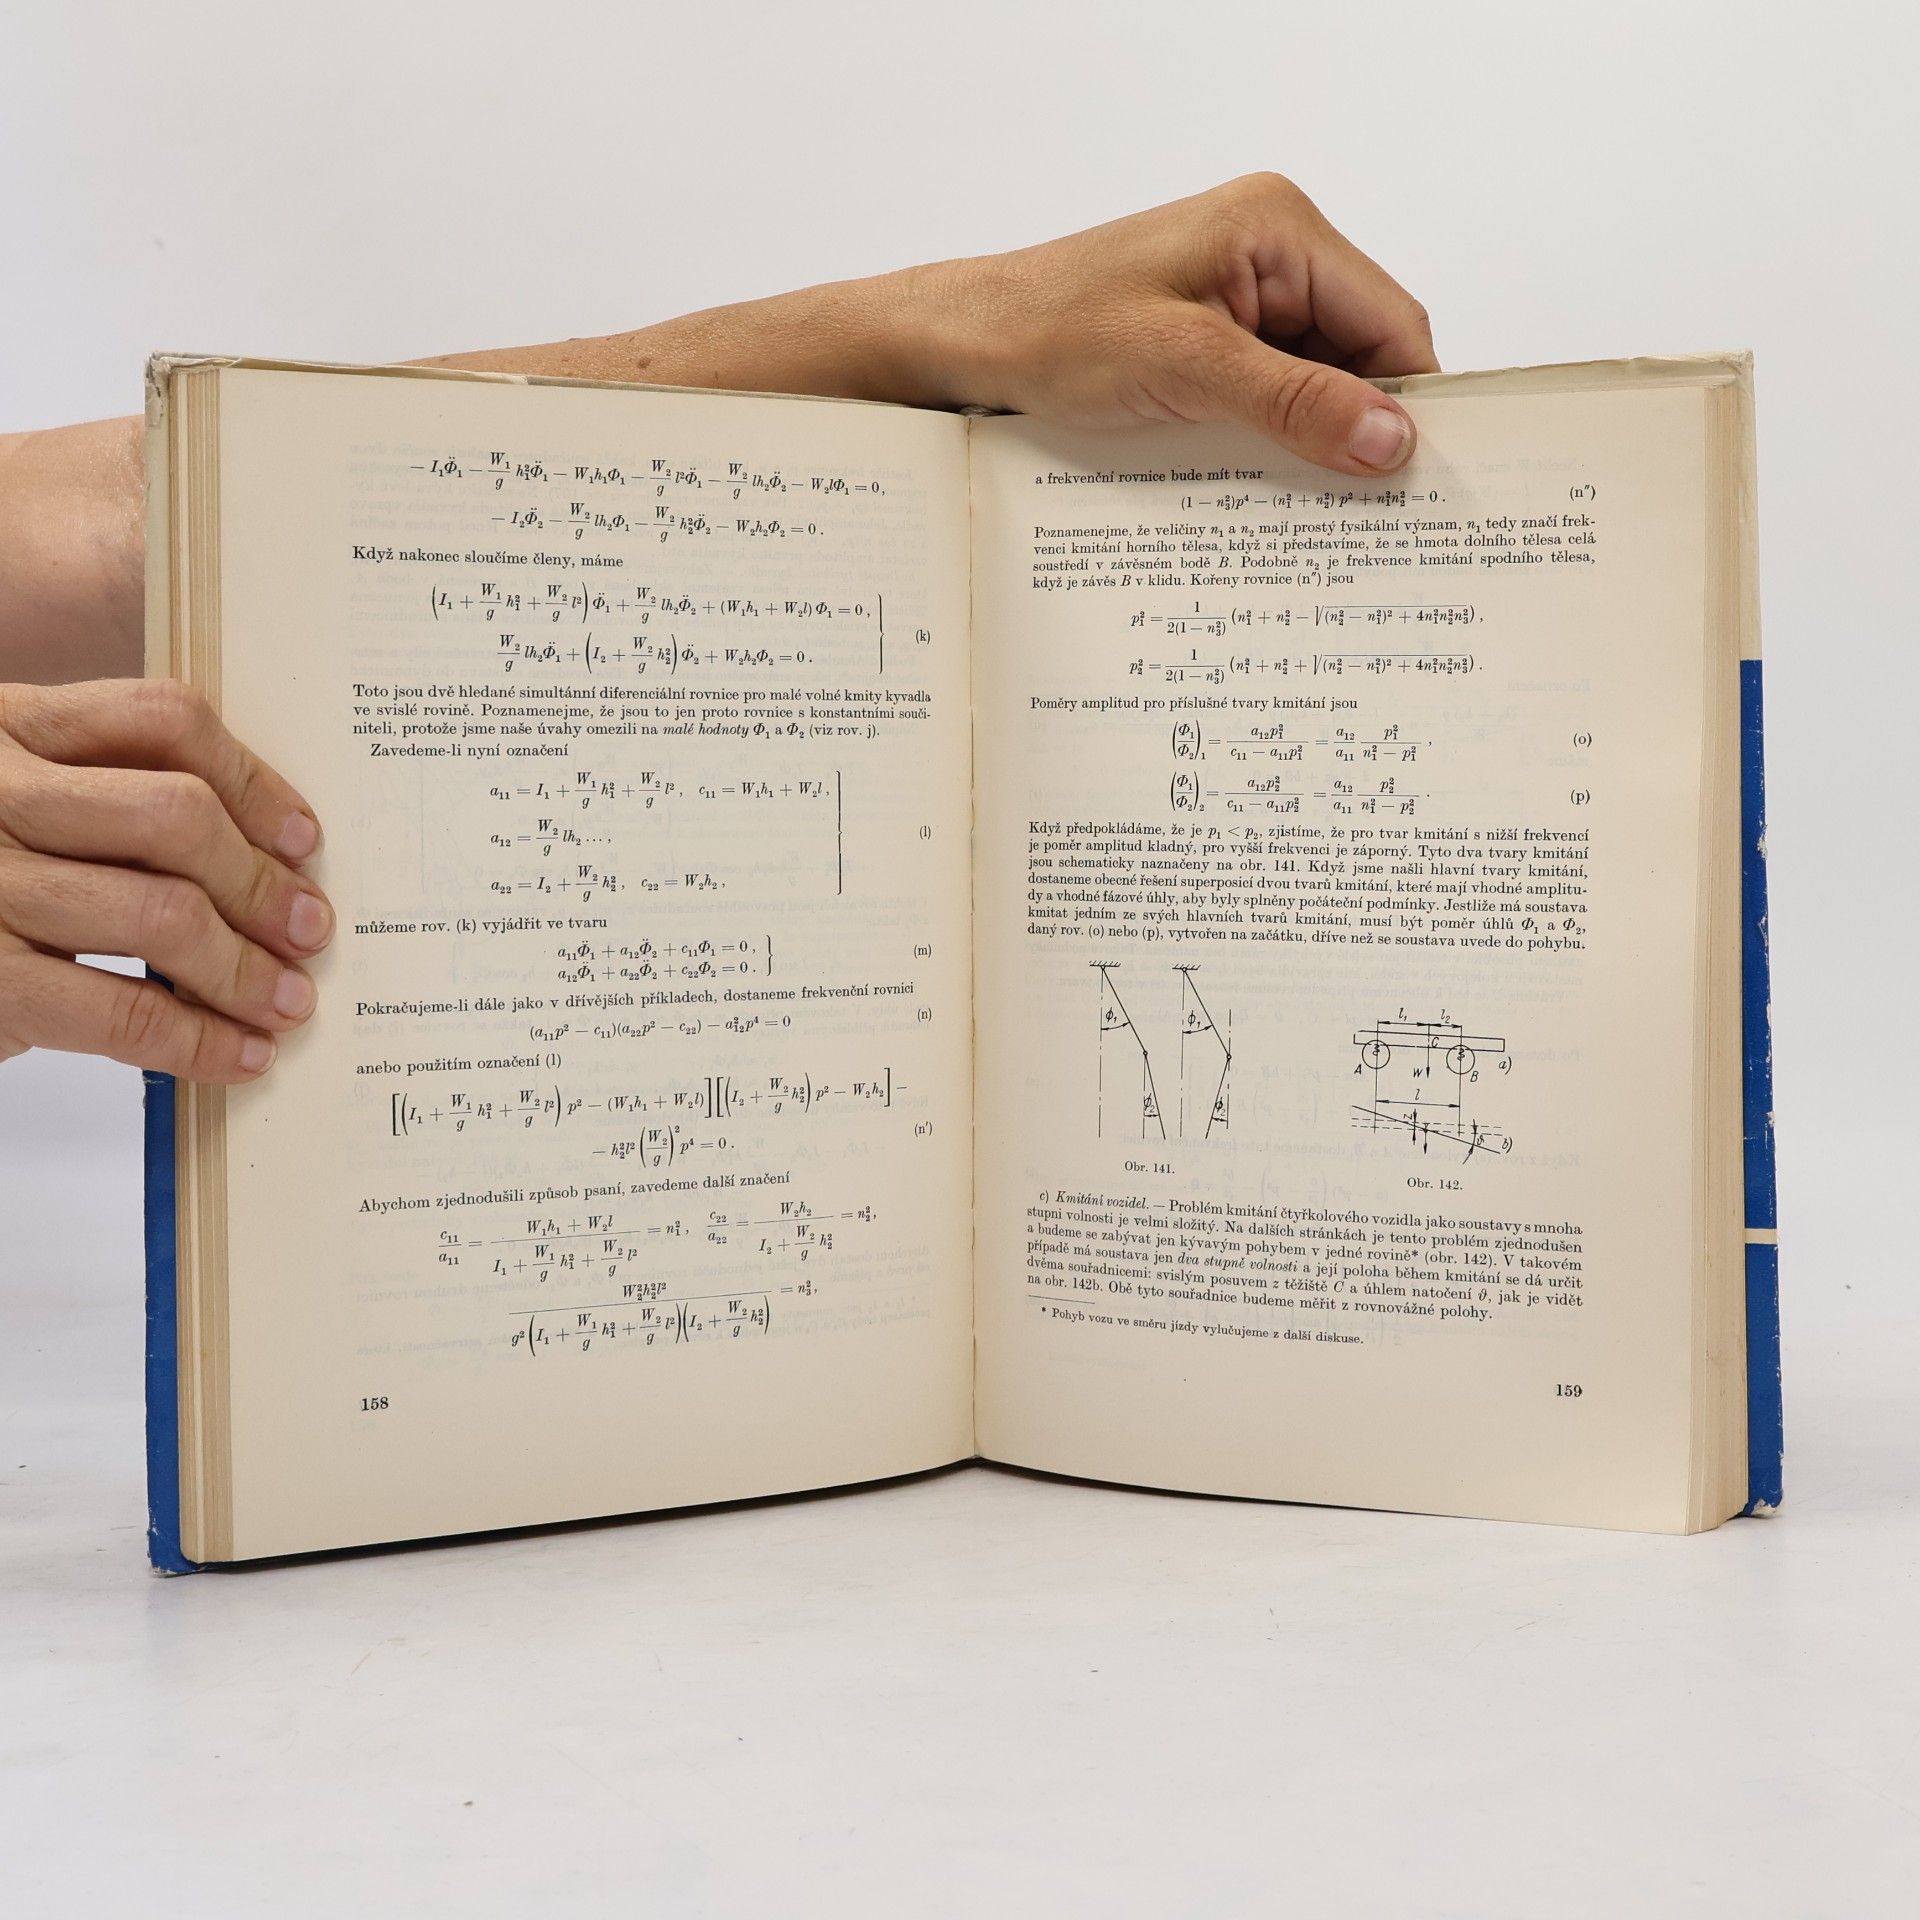 − I₁Φ̈₁ − W₁/g h₁²Φ̈₁ − W₁h₁Φ₁ − W₂/g l²Φ̈₁ − W₂/g lh₂Φ̈₂ − W₂lΦ₁ = 0,
− I₂Φ̈₂ − W₂/g lh₂Φ̈₁ − W₂/g h₂²Φ̈₂ − W₂h₂Φ₂ = 0 .
Když nakonec sloučíme členy, máme
(I₁ + W₁/g h₁² + W₂/g l²) Φ̈₁ + W₂/g lh₂Φ̈₂ + (W₁h₁ + W₂l) Φ₁ = 0 ,
W₂/g lh₂Φ̈₁ + (I₂ + W₂/g h₂²) Φ̈₂ + W₂h₂Φ₂ = 0 .
(k)
Toto jsou dvě hledané simultánní diferenciální rovnice pro malé volné kmity kyvadla
ve svislé rovině. Poznamenejme, že jsou to jen proto rovnice s konstantními souči-
niteli, protože jsme naše úvahy omezili na malé hodnoty Φ₁ a Φ₂ (viz rov. j).
Zavedeme-li nyní označení
a₁₁ = I₁ + W₁/g h₁² + W₂/g l² , c₁₁ = W₁h₁ + W₂l ,
a₁₂ = W₂/g lh₂ ... ,
(l)
a₂₂ = I₂ + W₂/g h₂² , c₂₂ = W₂h₂ ,
můžeme rov. (k) vyjádřit ve tvaru
a₁₁Φ̈₁ + a₁₂Φ̈₂ + c₁₁Φ₁ = 0 ,
a₁₂Φ̈₁ + a₂₂Φ̈₂ + c₂₂Φ₂ = 0 .
(m)
Pokračujeme-li dále jako v dřívějších příkladech, dostaneme frekvenční rovnici
(a₁₁p² − c₁₁)(a₂₂p² − c₂₂) − a₁₂²p⁴ = 0 (n)
anebo použitím označení (l)
[(I₁ + W₁/g h₁² + W₂/g l²) p² − (W₁h₁ + W₂l)] [(I₂ + W₂/g h₂²) p² − W₂h₂] −
− h₂²l² (W₂/g)² p⁴ = 0 . (n′)
Abychom zjednodušili způsob psaní, zavedeme další značení
c₁₁/a₁₁ = (W₁h₁ + W₂l)/(I₁ + W₁/g h₁² + W₂/g l²) = n₁² , c₂₂/a₂₂ = W₂h₂/(I₂ + W₂/g h₂²) = n₂² ,
W₂²h₂²l²/(g² (I₁ + W₁/g h₁² + W₂/g l²)(I₂ + W₂/g h₂²)) = n₃² ,
158
a frekvenční rovnice bude mít tvar
(1 − n₃²)p⁴ − (n₁² + n₂²) p² + n₁²n₂² = 0 . (n″)
Poznamenejme, že veličiny n₁ a n₂ mají prostý fysikální význam, n₁ tedy značí frek-
venci kmitání horního tělesa, když si představíme, že se hmota dolního tělesa celá
soustředí v závěsném bodě B. Podobně n₂ je frekvence kmitání spodního tělesa,
když je závěs B v klidu. Kořeny rovnice (n″) jsou
p₁² = 1/(2(1 − n₃²)) (n₁² + n₂² − √((n₂² − n₁²)² + 4n₁²n₂²n₃²)) ,
p₂² = 1/(2(1 − n₃²)) (n₁² + n₂² + √((n₂² − n₁²)² + 4n₁²n₂²n₃²)) .
Poměry amplitud pro příslušné tvary kmitání jsou
(Φ₁/Φ₂)₁ = a₁₂p₁²/(c₁₁ − a₁₁p₁²) = a₁₂/a₁₁ p₁²/(n₁² − p₁²) , (o)
(Φ₁/Φ₂)₂ = a₁₂p₂²/(c₁₁ − a₁₁p₂²) = a₁₂/a₁₁ p₂²/(n₁² − p₂²) . (p)
Když předpokládáme, že je p₁ < p₂, zjistíme, že pro tvar kmitání s nižší frekvencí
je poměr amplitud kladný, pro vyšší frekvenci je záporný. Tyto dva tvary kmitání
jsou schematicky naznačeny na obr. 141. Když jsme našli hlavní tvary kmitání,
dostaneme obecné řešení superposicí dvou tvarů kmitání, které mají vhodné amplitu-
dy a vhodné fázové úhly, aby byly splněny počáteční podmínky. Jestliže má soustava
kmitat jedním ze svých hlavních tvarů kmitání, musí být poměr úhlů Φ₁ a Φ₂,
daný rov. (o) nebo (p), vytvořen na začátku, dříve než se soustava uvede do pohybu.
ϕ₁ ϕ₁
ϕ₂ ϕ₂
Obr. 141.
l₁ l₂
C
A W B a)
l
z ϑ b)
Obr. 142.
c) Kmitání vozidel. — Problém kmitání čtyřkolového vozidla jako soustavy s mnoha
stupni volnosti je velmi složitý. Na dalších stránkách je tento problém zjednodušen
a budeme se zabývat jen kývavým pohybem v jedné rovině* (obr. 142). V takovém
případě má soustava jen dva stupně volnosti a její poloha během kmitání se dá určit
dvěma souřadnicemi: svislým posuvem z těžiště C a úhlem natočení ϑ, jak je vidět
na obr. 142b. Obě tyto souřadnice budeme měřit z rovnovážné polohy.
* Pohyb vozu ve směru jízdy vylučujeme z další diskuse.
159